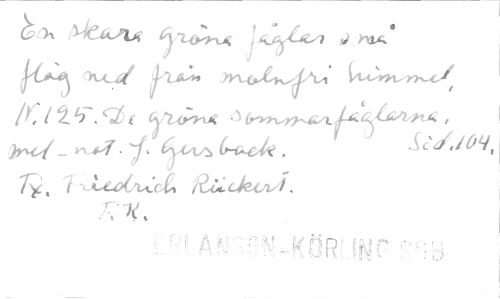 En skara gröna fåglar små
flög ned från molnfri himmel,
N.125. De gröna sommarfåglarna.
mel-not. J. Gersback. Sid. 104.
Tx. Friedrich Rückert.
F.K.
ERLANSON-KÖRLING SSB